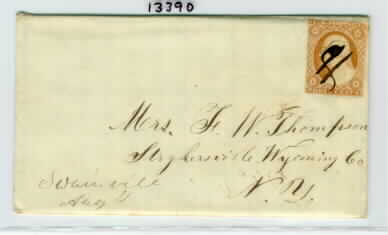 13390
Mrs. F. W. Thompson
Strykersville Wyoming Co
N. Y.
Swainville
Aug